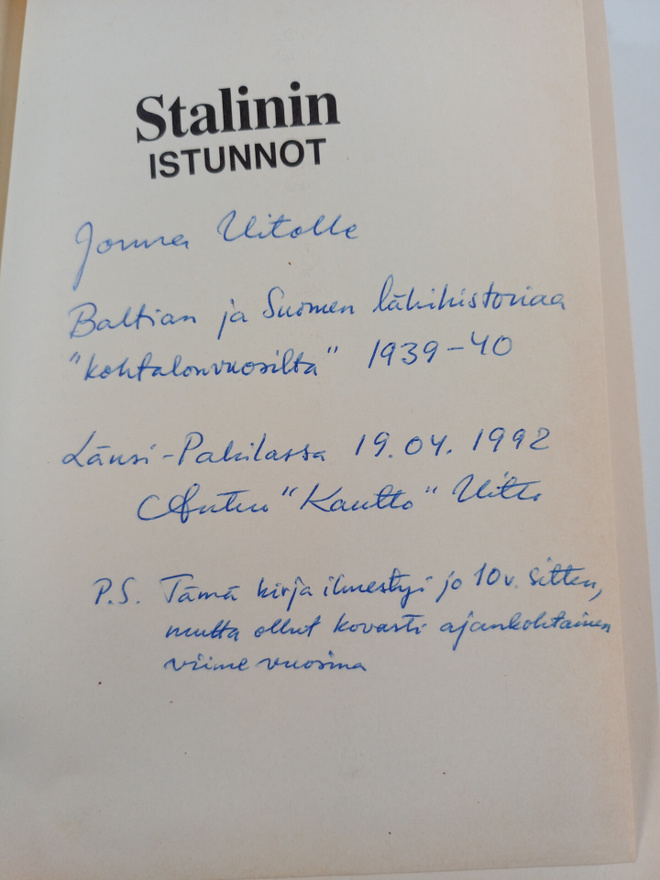 Stalinin
ISTUNNOT
Jorma Uitolle
Baltian ja Suomen lähihistoriaa
"kohtalonvuosilta" 1939-40
Länsi-Pakilassa 19.04. 1992
"Kautto" Uitto
P.S. Tämä kirja ilmestyi jo 10v. sitten,
mutta ollut kovasti ajankohtainen
viime vuosina